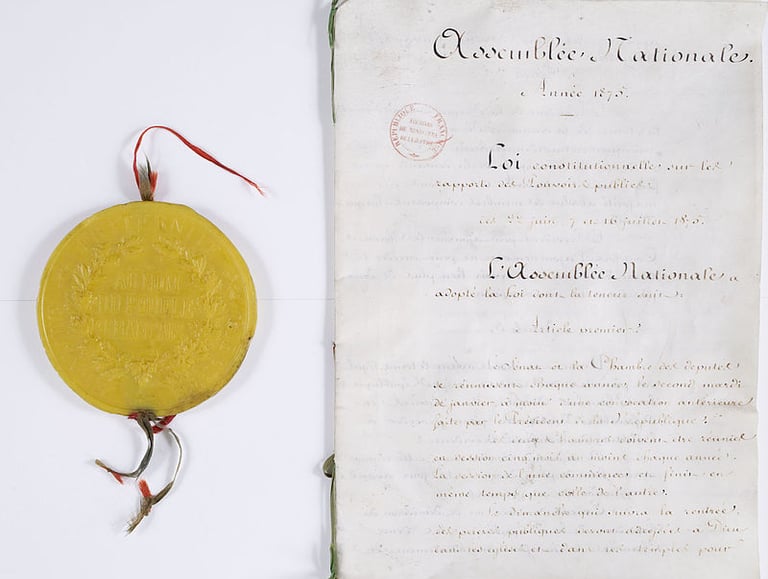 AU NOM
DU PEUPLE
FRANÇAIS
Assemblée Nationale.
Année 1875.
RÉPUBLIQUE FRANÇAISE
Loi constitutionnelle sur les
rapports des Pouvoirs publics.
des 22 juin, 7 et 16 juillet 1875.
L'Assemblée Nationale a
adopté la Loi dont la teneur suit:
Article premier.
Le Sénat et la Chambre des députés
se réunissent chaque année, le second mardi
de janvier, à moins d'une convocation antérieure
faite par le Président de la République.
Les deux Chambres doivent être réunies
en session cinq mois au moins chaque année.
La session de l'une commence et finit en
même temps que celle de l'autre.
Le dimanche qui suivra la rentrée,
des prières publiques seront adressées à Dieu
dans les églises et dans les temples pour